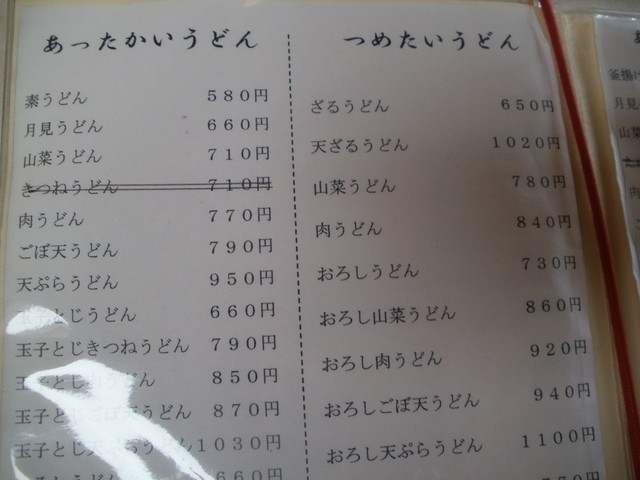 あったかいうどん
素うどん 580円
月見うどん 660円
山菜うどん 710円
きつねうどん 710円
肉うどん 770円
ごぼ天うどん 790円
天ぷらうどん 950円
とじうどん 660円
玉子とじきつねうどん 790円
玉子とじ うどん 850円
玉子とじごぼ天うどん 870円
玉子とじ うどん 1030円
うどん 660円
つめたいうどん
ざるうどん 650円
天ざるうどん 1020円
山菜うどん 780円
肉うどん 840円
おろしうどん 730円
おろし山菜うどん 860円
おろし肉うどん 920円
おろしごぼ天うどん 940円
おろし天ぷらうどん 1100円
釜揚げ
月見
山菜
肉